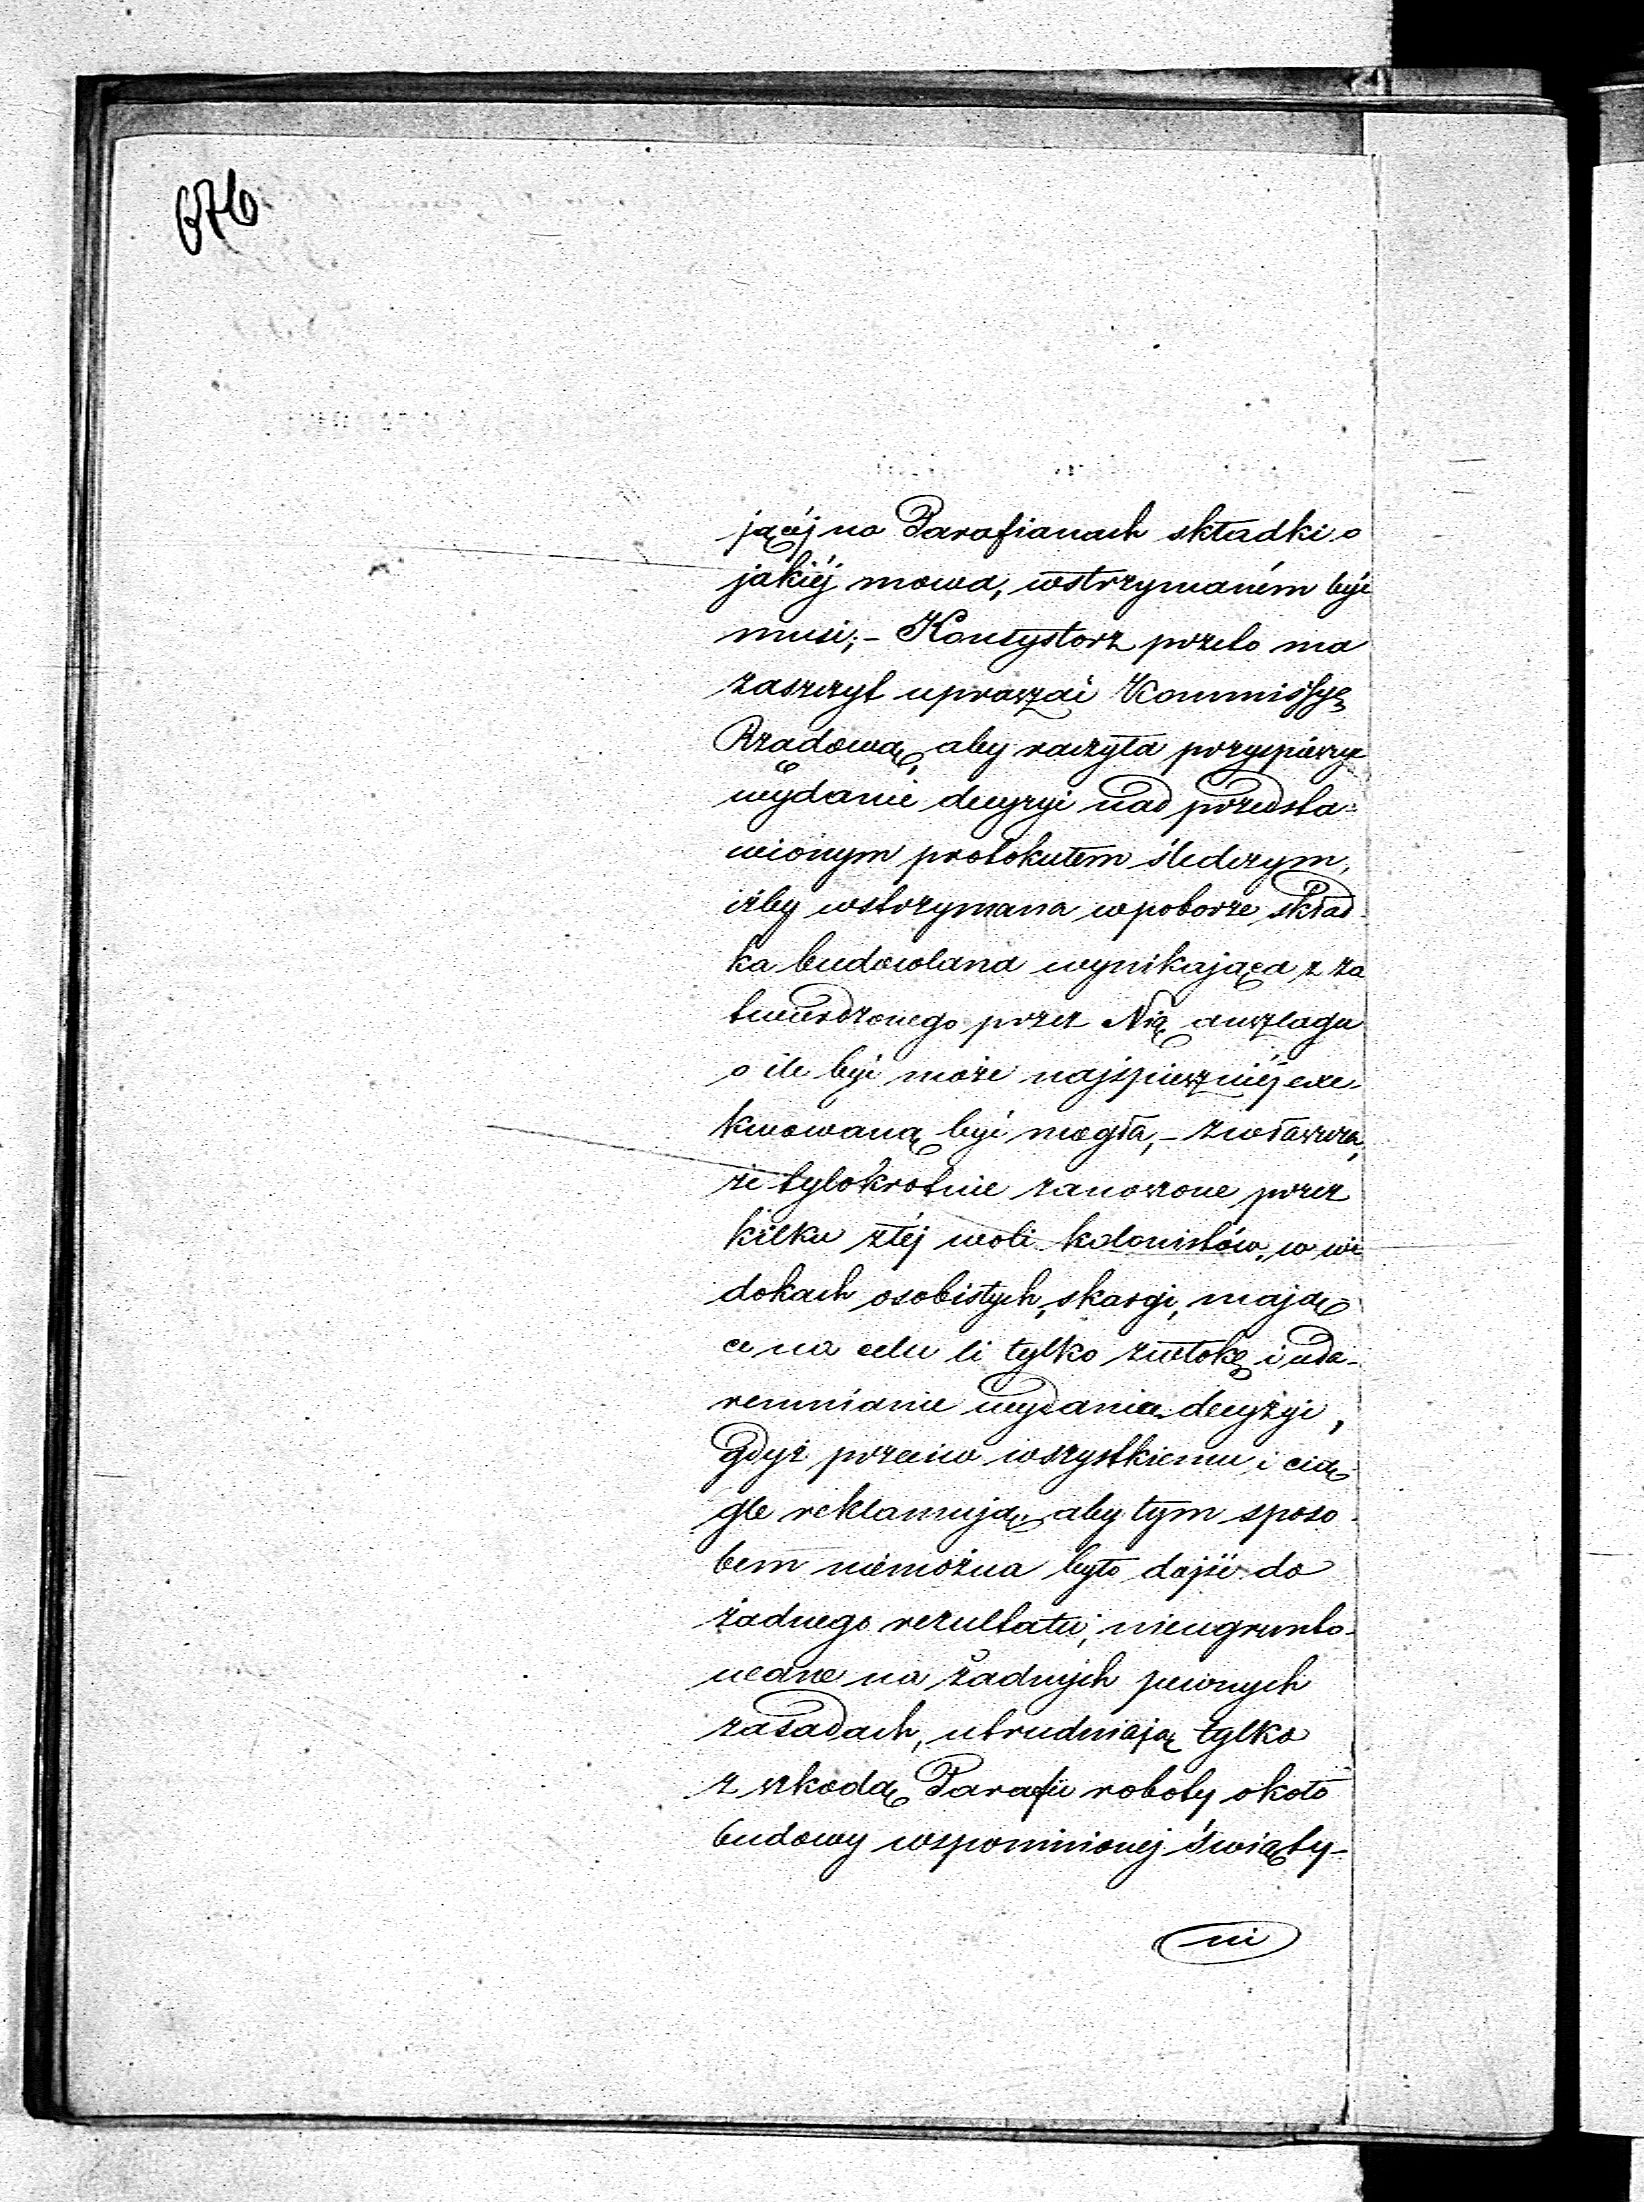 676
jącéj na Parafianach składki o
jakiéj mowa, wstrzymaném być
musi; – Konsystorz przeto ma
zaszczyt upraszać Kommissyę
Rządową, aby raczyła przyspieszyć
wydanie decyzyi nad przedsta-
wionym protokułem śledczym,
iżby wstrzymana w poborze skład-
ka budowlana wynikająca z za
twierdzonego przez Nię anszlagu
o ile być może najspieszniéj exe-
kwowaną być mogła, – zwłaszcza,
że tylokrotnie zanoszone przez
kilku złéj woli kolonistów, w wi
dokach osobistych, skargi, mają-
ce na celu li tylko zwłokę i uda-
remnianie wydania decyzyi,
gdyż przeciw wszystkiemu i cią-
gle reklamują, aby tym sposo-
bem niemożna było dojść do
żadnego rezultatu, nieugrunto-
wane na żadnych pewnych
zasadach, utrudniają tylko
z szkodą Parafii roboty około
budowy wspomnionej świąty-
ni